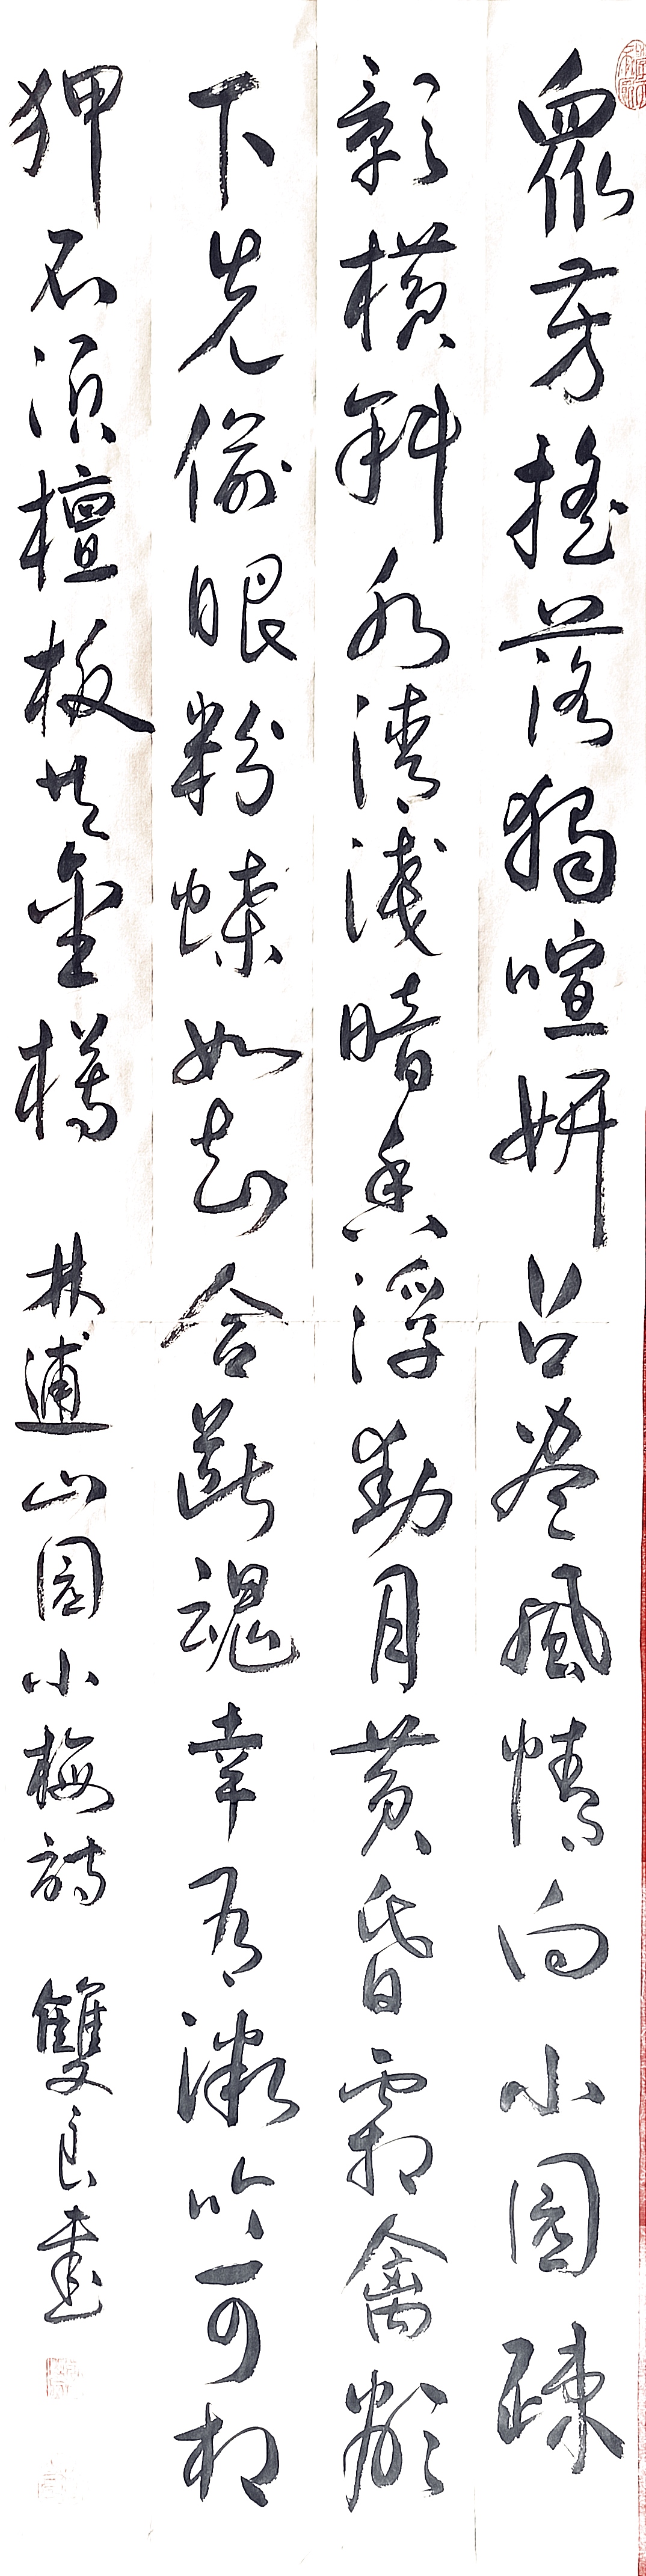 眾芳搖落獨喧妍占盡風情向小園疎
影橫斜水清淺暗香浮動月黃昏霜禽欲
下先偷眼粉蝶如知合斷魂幸有微吟可相
狎不須檀板共金樽 林逋山園小梅詩 雙良書